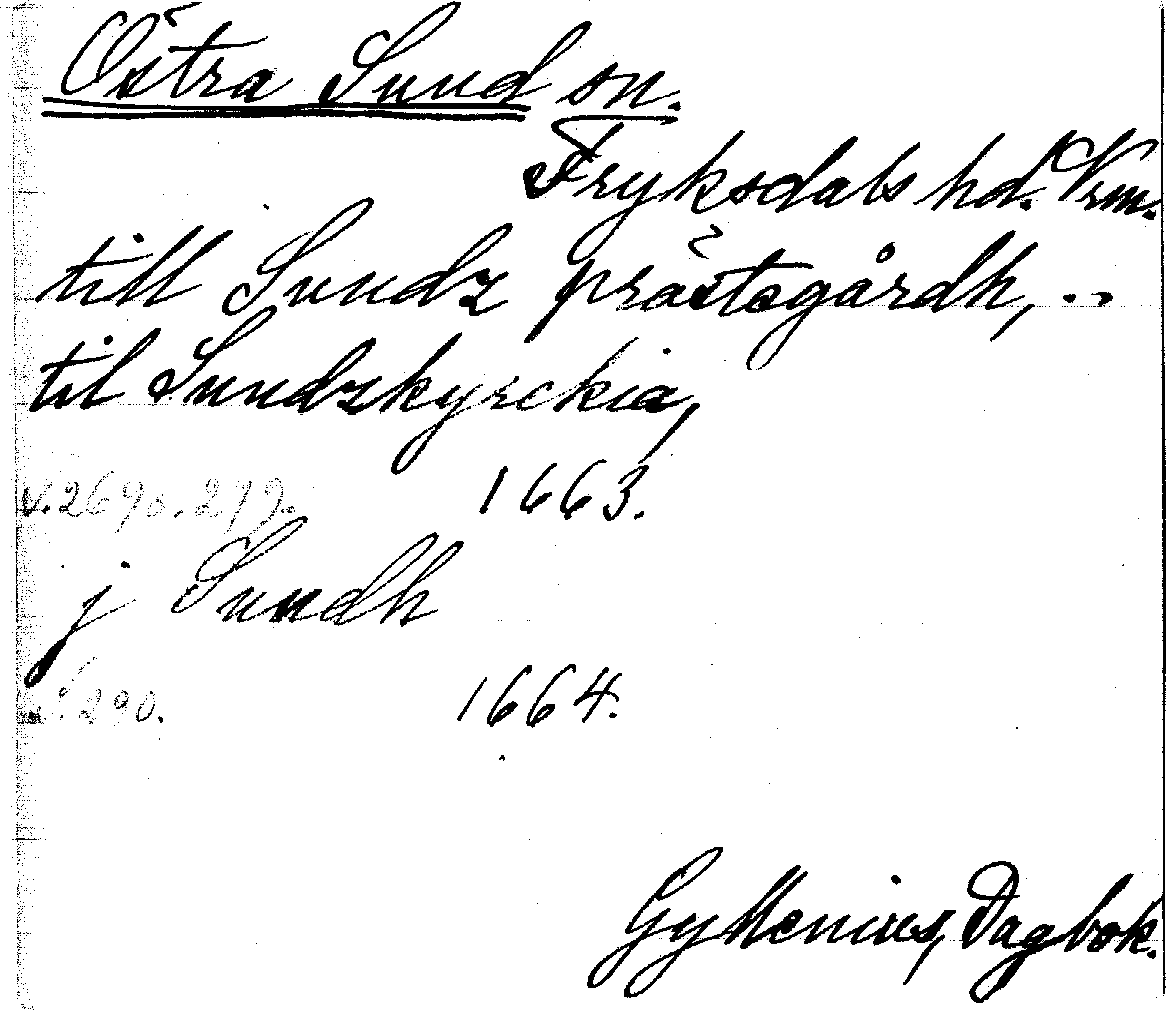 Östra Sund sn.
Fryksdals hd. Vrm.
till Sundz prästegårdh, ..
til Sundzkyrckia,
s. 269 o. 279. 1663.
j Sundh
s. 290. 1664.
Gyllenius, Dagbok.